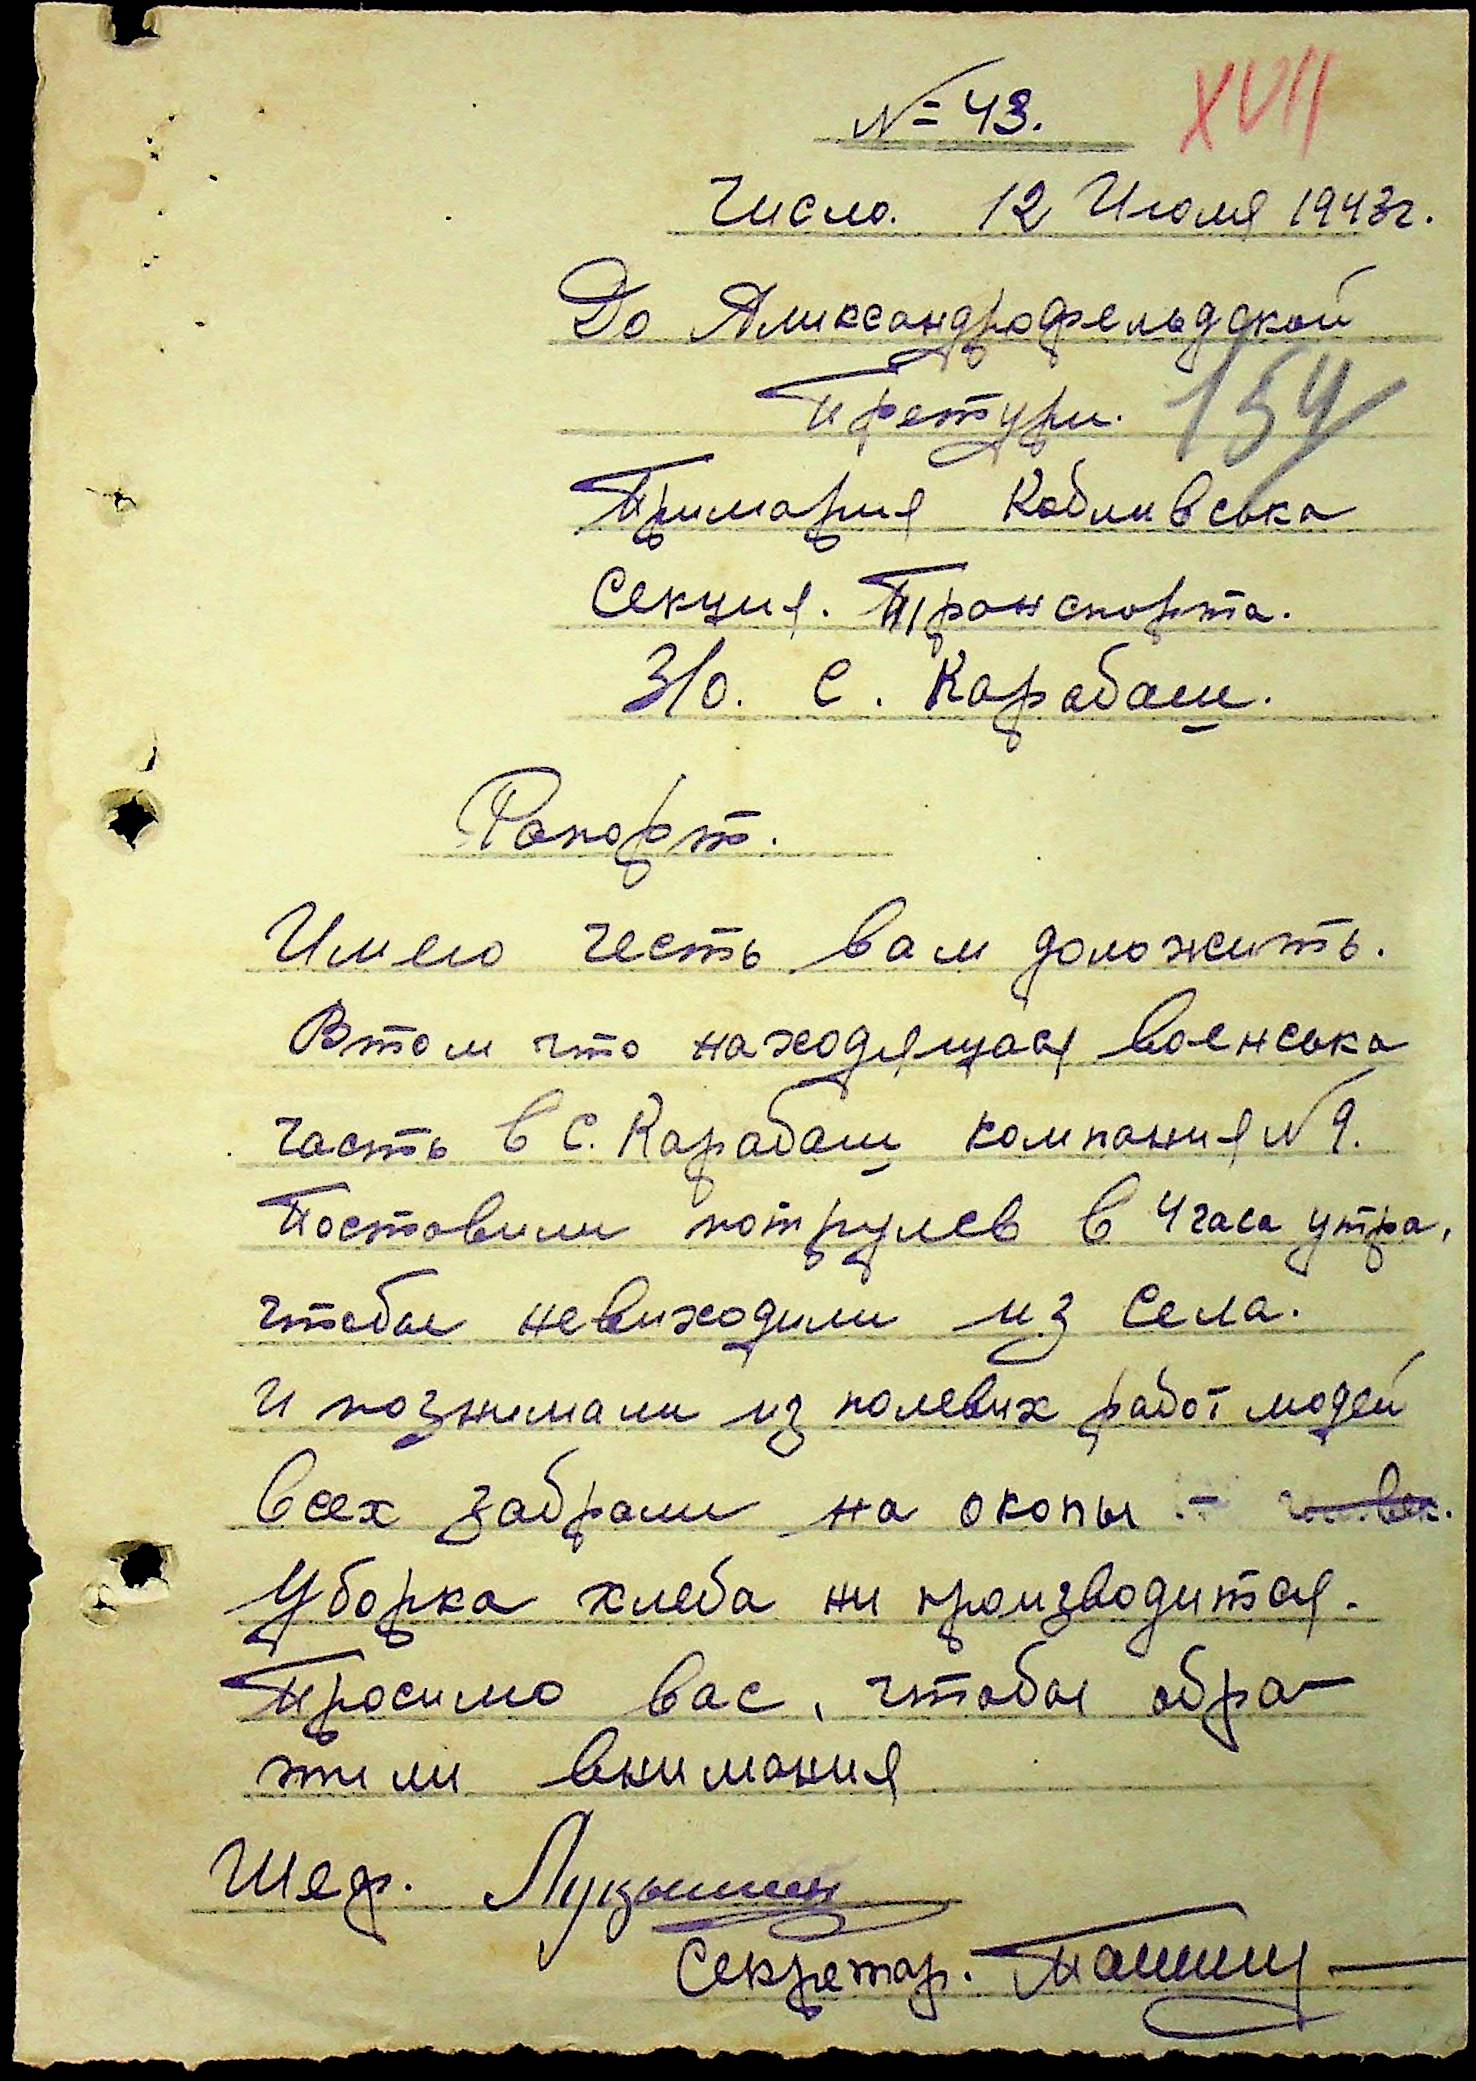 № 43.
XVII
Число. 12 Июля 1943г.
До Аликсандрофельдской
Претури.
154
Примария Кобливська
Секция. Транспорта.
З/о. С. Карабаш.
Рапорт.
Имею честь вам доложить.
Втом что находящася военська
часть в с. Карабаш компания №9.
Поставили потрулев в 4 часа утра,
чтобы невиходили из села.
и познимали из полевих работ людей
всех забрали на окопы
Уборка хлеба ни производится.
Просимо вас, чтобы обра-
тили внимания
Шеф.
Секретар.